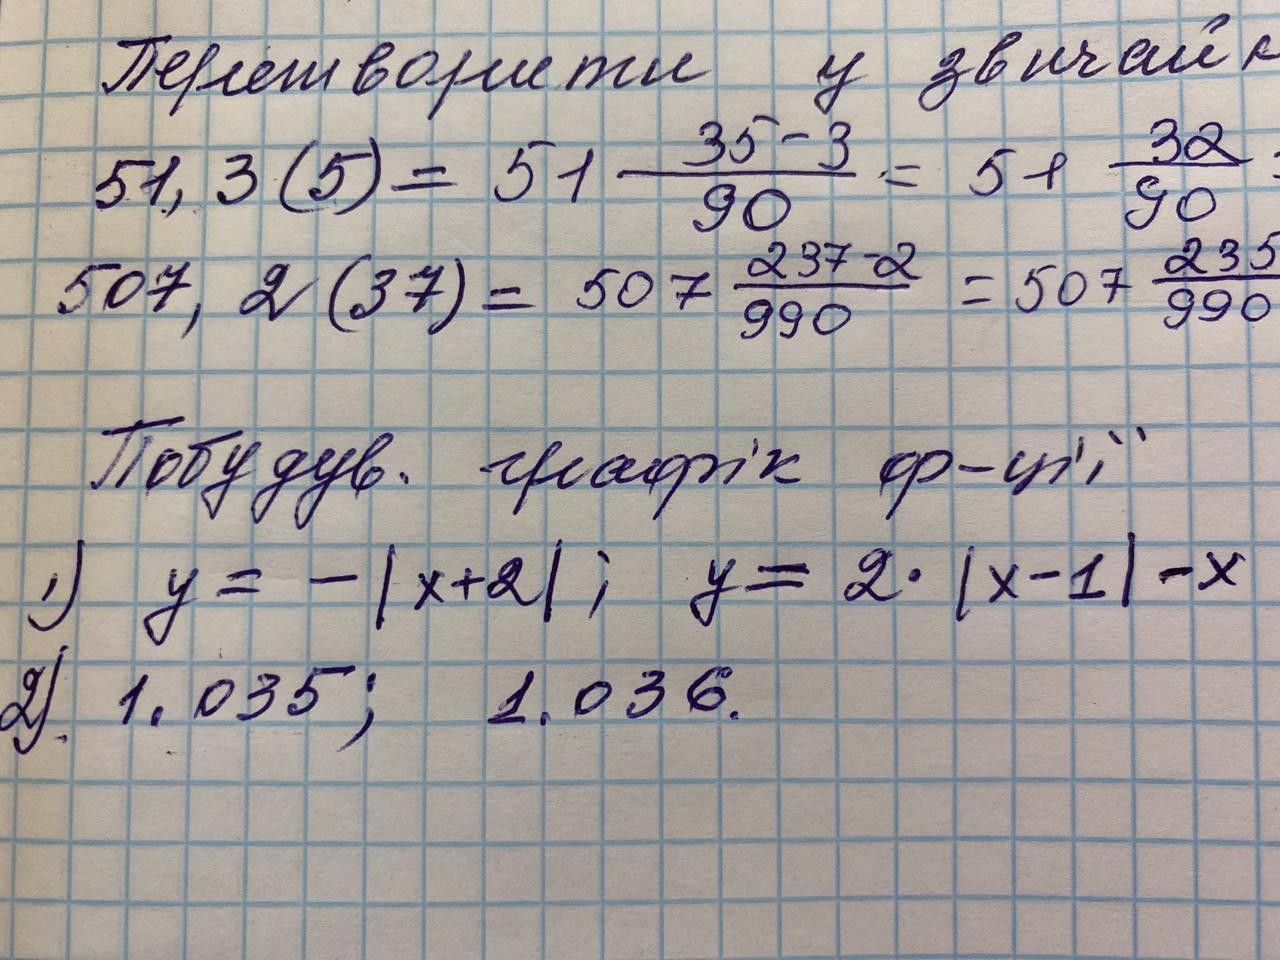 Перетворити у звичайн
51,3(5) = 51 35-3/90 = 51 32/90 =
507,2(37) = 507 237-2/990 = 507 235/990
Побудув. графік ф-ції
1) y = -|x+2|; y = 2·|x-1|-x
2). 1.035; 1.036.